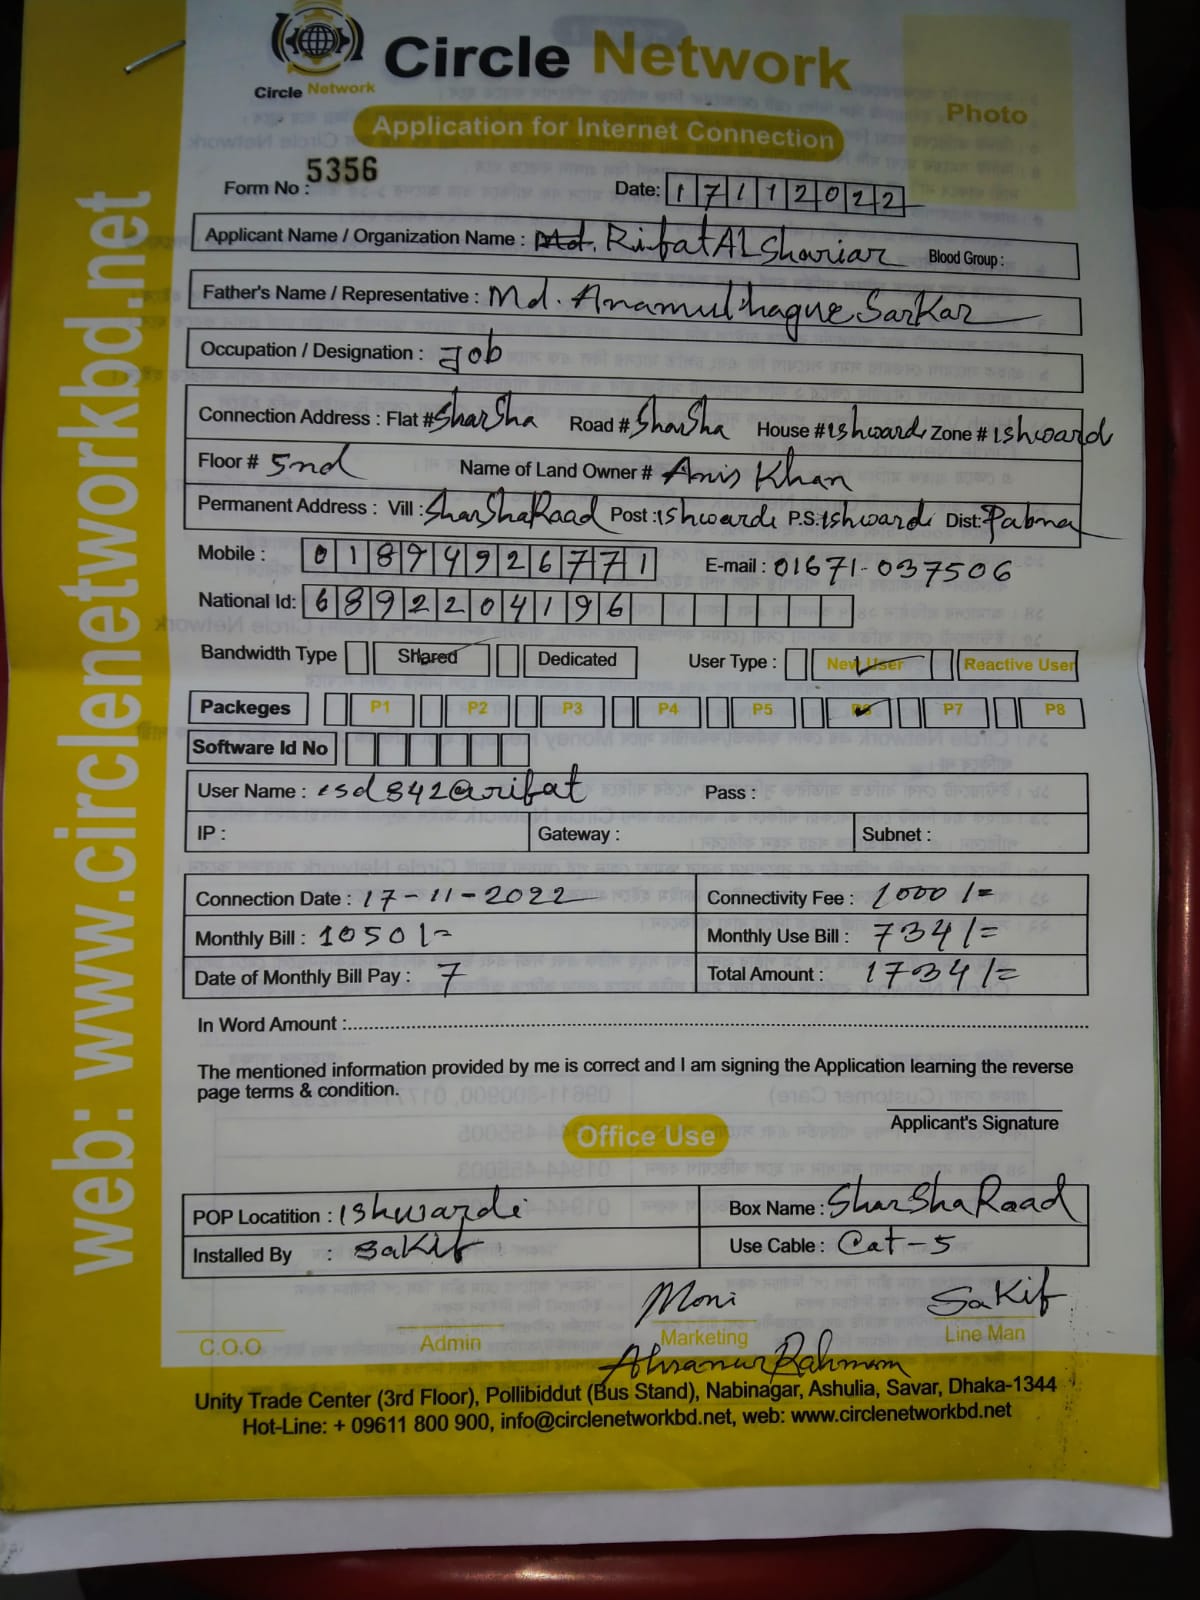 Circle Network
Circle Network
Photo
Application for Internet Connection
Form No : 5356
Date: 17112022
Applicant Name / Organization Name : Md. Rifat AL Shariar Blood Group :
Father's Name / Representative : Md. Anamul haque Sarkar
Occupation / Designation : Job
Connection Address : Flat # Sharsha Road # Sharsha House # ishwardi Zone # ishwardi
Floor # 5nd Name of Land Owner # Anis Khan
Permanent Address : Vill : Sharsha Road Post : ishwardi P.S: ishwardi Dist: Pabna
Mobile : 01894926771 E-mail : 01671-037506
National Id: 6892204196
Bandwidth Type Shared Dedicated User Type : New User Reactive User
Packeges P1 P2 P3 P4 P5 P6 P7 P8
Software Id No
User Name : isd842@rifat Pass :
IP : Gateway : Subnet :
Connection Date : 17-11-2022 Connectivity Fee : 1000/=
Monthly Bill : 1050/= Monthly Use Bill : 734/=
Date of Monthly Bill Pay : 7 Total Amount : 1734/=
In Word Amount :
The mentioned information provided by me is correct and I am signing the Application learning the reverse
page terms & condition.
Applicant's Signature
Office Use
POP Locatition : Ishwardi Box Name : Sharsha Road
Installed By : Sakif Use Cable : Cat-5
Moni Sakif
C.O.O Admin Marketing Line Man
Unity Trade Center (3rd Floor), Pollibiddut (Bus Stand), Nabinagar, Ashulia, Savar, Dhaka-1344
Hot-Line: + 09611 800 900, info@circlenetworkbd.net, web: www.circlenetworkbd.net
web: www.circlenetworkbd.net